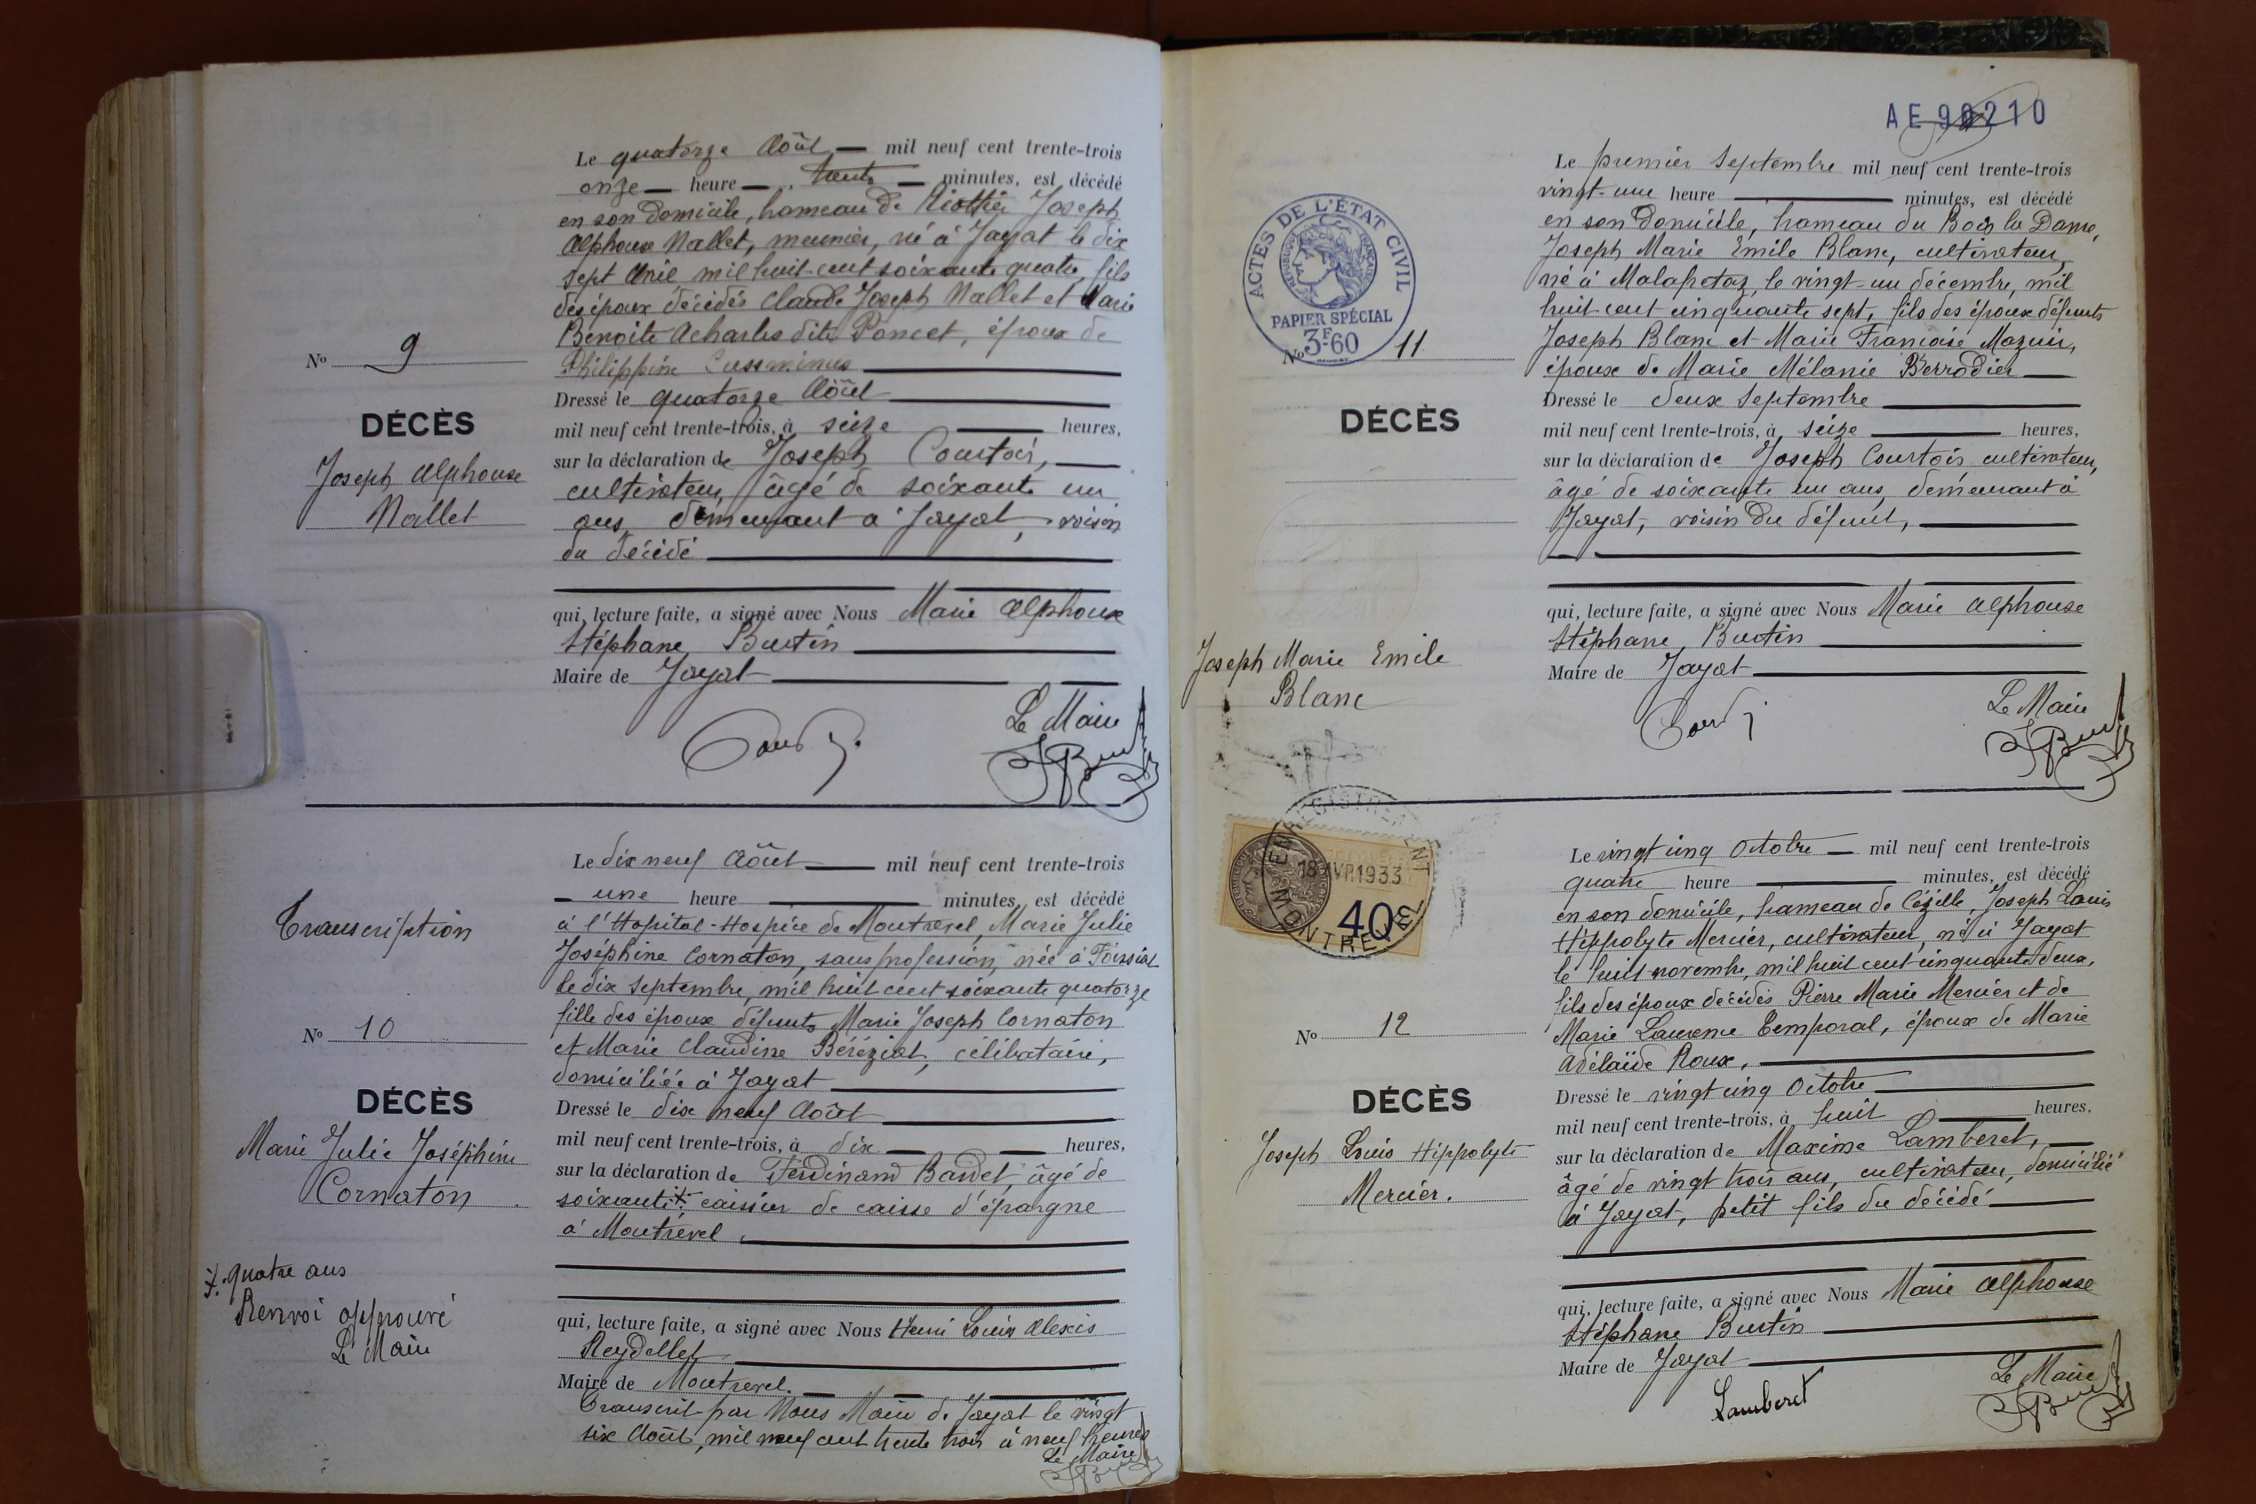 Le quatorze Août — mil neuf cent trente-trois
onze — heure — trente — minutes, est décédé
en son domicile, hameau de Riottier Joseph
Alphonse Nallet, meunier, né à Jayat le dix
sept Avril mil huit-cent soixante quatre, fils
des époux décédés Claude Joseph Nallet et Marie
Benoite Acharles dite Poncet, époux de
Philippine
No 9
DÉCÈS
Joseph Alphonse
Nallet
Dressé le quatorze Août
mil neuf cent trente-trois, à seize heures,
sur la déclaration de Joseph Courtois,
cultivateur, âgé de soixante un
ans, demeurant à Jayat, voisin
du décédé
qui, lecture faite, a signé avec Nous Marie Alphonse
Stéphane Burtin
Maire de Jayat
Le Maire
Transcription
No 10
DÉCÈS
Marie Julie Joséphine
Cornaton
Le dix neuf Août — mil neuf cent trente-trois
— une heure — minutes, est décédé
à l'Hopital-Hospice de Montrevel, Marie Julie
Joséphine Cornaton, sans profession, née à Foissiat
le dix septembre, mil huit cent soixante quatorze
fille des époux défunts Marie Joseph Cornaton
et Marie Claudine Béréziat, célibataire,
domiciliée à Jayat
Dressé le dix neuf Août
mil neuf cent trente-trois, à dix heures,
sur la déclaration de Ferdinand Baudet, âgé de
soixante ⁒ caissier de caisse d'épargne
à Montrevel,
⁒ quatre ans
Renvoi approuvé
Le Maire
qui, lecture faite, a signé avec Nous Henri Louis Alexis
Reydellet
Maire de Montrevel.
Transcrit par Nous Maire de Jayat le vingt
six Août, mil neuf cent trente trois à neuf heures
Le Maire
AE 90210
ACTES DE L'ÉTAT CIVIL
RÉPUBLIQUE FRANÇAISE
PAPIER SPÉCIAL
3F60
No 11
DÉCÈS
Joseph Marie Emile
Blanc
Le premier Septembre mil neuf cent trente-trois
vingt-une heure — minutes, est décédé
en son domicile, hameau du Bois la Dame,
Joseph Marie Emile Blanc, cultivateur,
né à Malafretaz, le vingt-un décembre, mil
huit-cent cinquante sept, fils des époux défunts
Joseph Blanc et Marie Francoise Mazuir,
époux de Marie Mélanie Berrodier
Dressé le deux Septembre
mil neuf cent trente-trois, à seize heures,
sur la déclaration de Joseph Courtois cultivateur,
âgé de soixante un ans, demeurant à
Jayat, voisin du défunt,
qui, lecture faite, a signé avec Nous Marie Alphonse
Stéphane Burtin
Maire de Jayat
Le Maire
ENREGISTREMENT
18 AVR 1933
40
MONTREVEL
No 12
DÉCÈS
Joseph Louis Hippolyte
Mercier.
Le vingt cinq Octobre — mil neuf cent trente-trois
quatre heure — minutes, est décédé
en son domicile, hameau de Cézille, Joseph Louis
Hippolyte Mercier, cultivateur, né à Jayat
le huit novembre, mil huit cent cinquante deux,
fils des époux décédés Pierre Marie Mercier et de
Marie Laurence Temporal, époux de Marie
Adélaïde Roux,
Dressé le vingt cinq Octobre
mil neuf cent trente-trois, à huit heures,
sur la déclaration de Maxime Lamberet,
âgé de vingt trois ans, cultivateur, domicilié
à Jayat, petit fils du décédé
qui, lecture faite, a signé avec Nous Marie Alphonse
Stéphane Burtin
Maire de Jayat
Le Maire
Lamberet